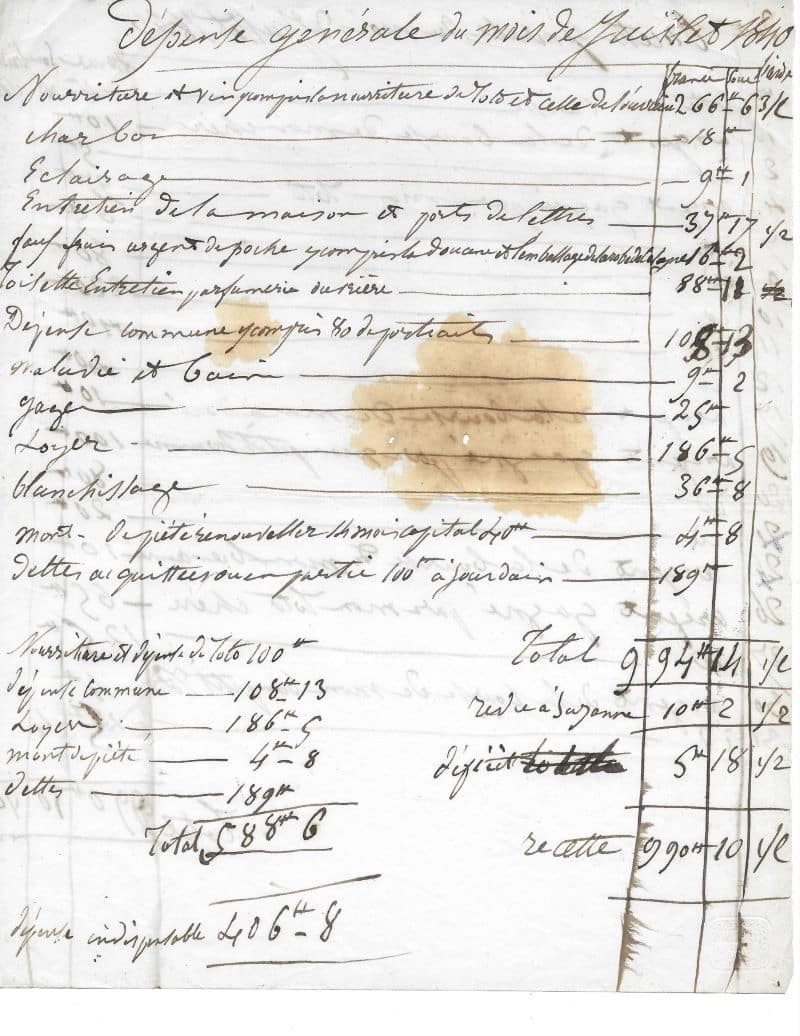 dépense générale du mois de Juillet 1840
francs sous liards
Nourriture et vin y compris la nourriture de Toto et celle de l'ouvrière 266# 6 1/2
charbon 18#
Eclairage 9# 1
Entretien de la maison et ports de lettres 37# 17 1/2
faux frais argent de poche y compris la douane et l'emballage de la robe de 16# 2
Toilette Entretien parfumerie ouvrière 88# 11
Dépense commune y compris 80 de portraits 108# 13
maladie et bain 9# 2
gages 25#
Loyer 186# 5
blanchissage 36# 8
mont-de piété renouveller 14 mois capital 40# 4# 8
dettes acquittées ou en partie 100# à Jourdain 189#
Total 994# 14 1/2
Nourriture et dépense de Toto 100#
dépense commune 108# 13
redue à Suzanne 10# 2 1/2
Loyer 186# 5
mont de piété 4# 8
déficit 5# 18 1/2
dettes 189#
Total 588# 6
recette 990# 10 1/2
dépense indispensable 406# 8